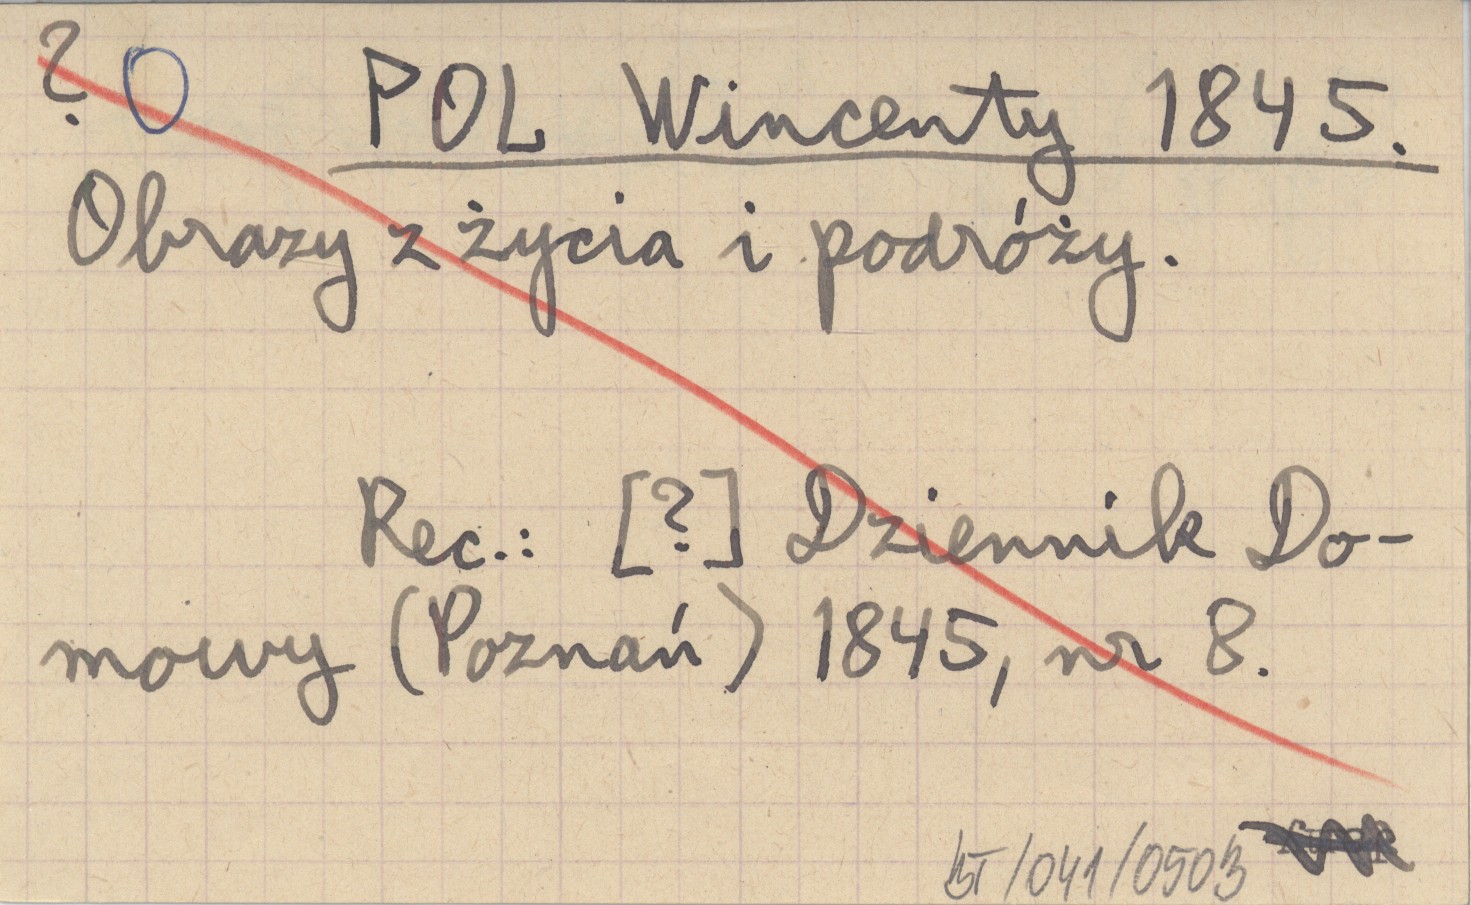 ? O POL Wincenty 1845.
Obrazy z życia i podróży.
Rec.: [?] Dziennik Do-
mowy (Poznań) 1845, nr 8.
/041/0503